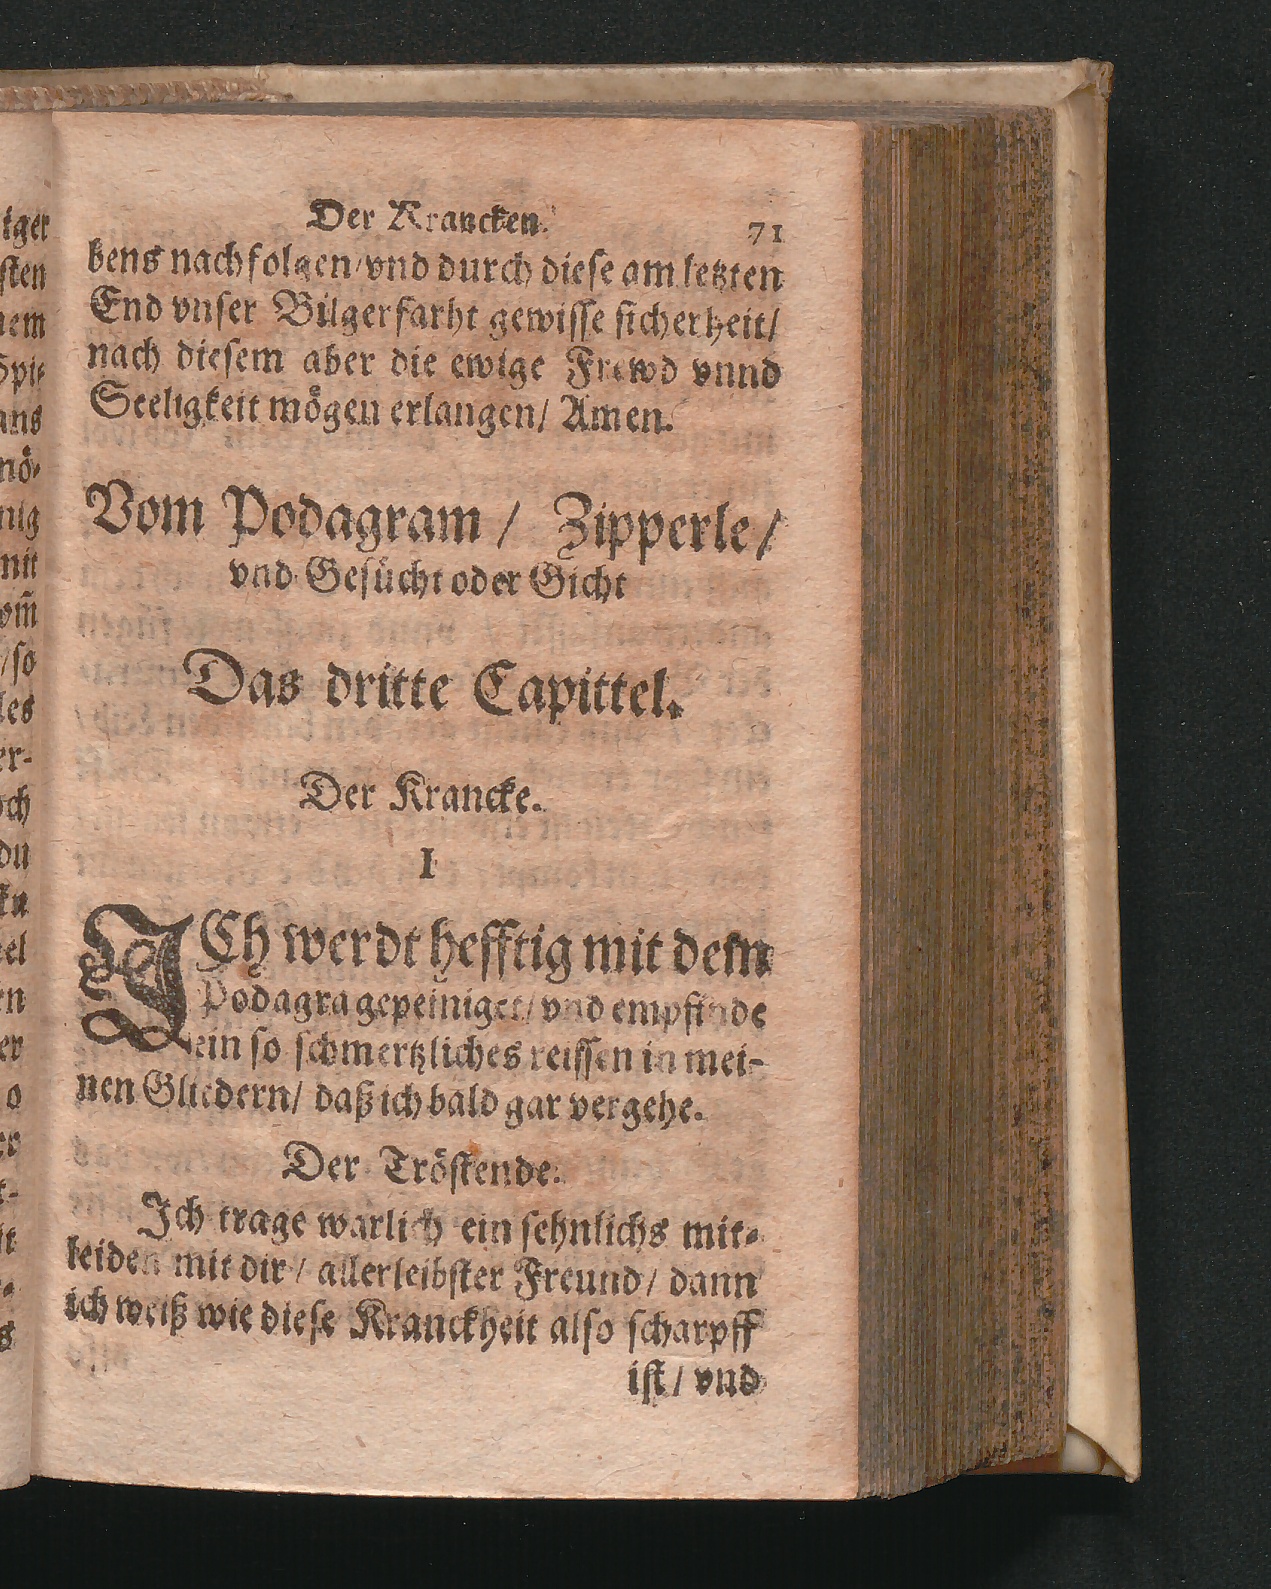 Der Krancken. 71
bens nachfolgen/vnd durch diese am letzten
End vnser Bilgerfarht gewisse sicherheit/
nach diesem aber die ewige Frewd vnnd
Seeligkeit mögen erlangen/ Amen.
Vom Podagram / Zipperle/
vnd Gesücht oder Gicht
Das dritte Capittel.
Der Krancke.
I
ICh werdt hefftig mit dem
Podagra gepeiniget/ vnd empfinde
ein so schmertzliches reissen in mei-
nen Gliedern/ daß ich bald gar vergehe.
Der Tröstende.
Ich trage warlich ein sehnlichs mit-
leiden mit dir/ allerleibster Freund/ dann
ich weiß wie diese Kranckheit also scharpff
ist/ vnd